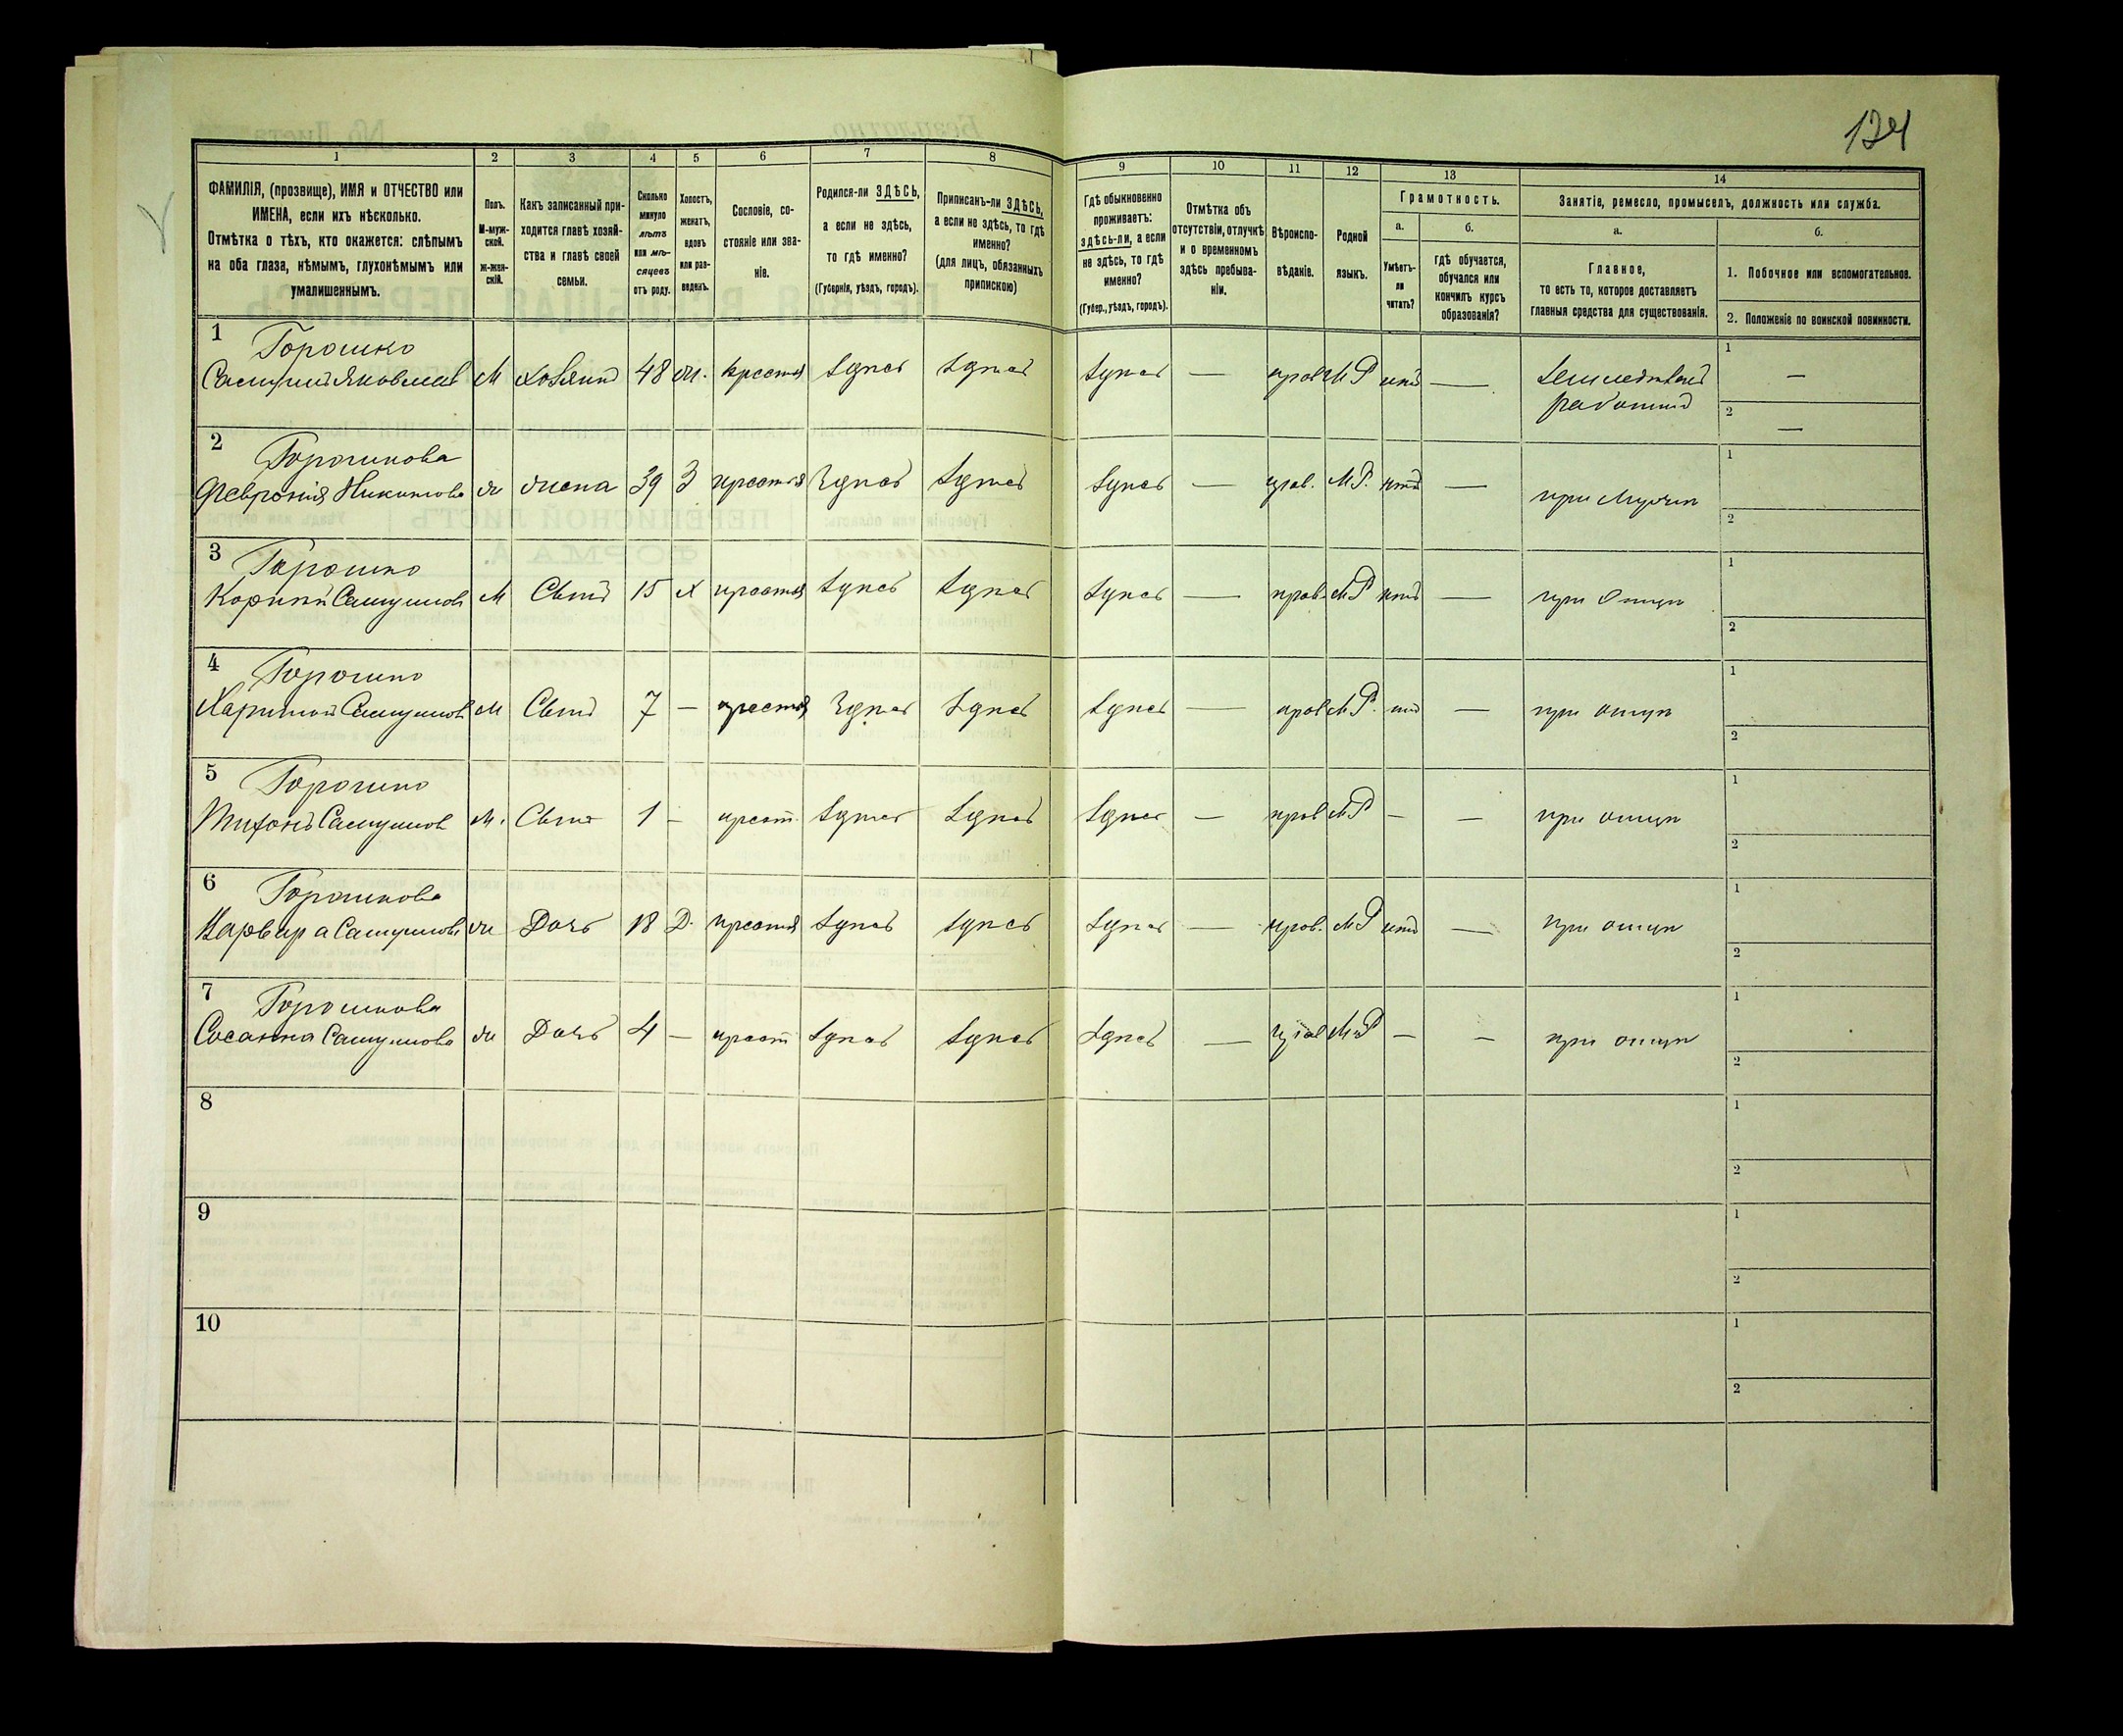 134
1 2 3 4 5 6 7 8 9 10 11 12 13 14
ФАМИЛІЯ, (прозвище), ИМЯ и ОТЧЕСТВО или
ИМЕНА, если ихъ нѣсколько.
Отмѣтка о тѣхъ, кто окажется: слѣпымъ
на оба глаза, нѣмымъ, глухонѣмымъ или
умалишеннымъ.
Полъ.
М-муж-
ской.
Ж-жен-
скій.
Какъ записанный при-
ходится главѣ хозяй-
ства и главѣ своей
семьи.
Сколько
минуло
лѣтъ
или мѣ-
сяцевъ
отъ роду.
Холостъ,
женатъ,
вдовъ
или раз-
веденъ.
Сословіе, со-
стояніе или зва-
ніе.
Родился-ли ЗДѢСЬ,
а если не здѣсь,
то гдѣ именно?
(Губернія, уѣздъ, городъ).
Приписанъ-ли ЗДѢСЬ,
а если не здѣсь, то гдѣ
именно?
(для лицъ, обязанныхъ
припискою)
Гдѣ обыкновенно
проживаетъ:
здѣсь-ли, а если
не здѣсь, то гдѣ
именно?
(Губер., уѣздъ, городъ).
Отмѣтка объ
отсутствіи, отлучкѣ
и о временномъ
здѣсь пребыва-
ніи.
Вѣроиспо-
вѣданіе.
Родной
языкъ.
Грамотность.
а.
Умѣетъ-
ли
читать?
б.
гдѣ обучается,
обучался или
кончилъ курсъ
образованія?
Занятіе, ремесло, промыселъ, должность или служба.
а.
Главное,
то есть то, которое доставляетъ
главныя средства для существованія.
б.
1. Побочное или вспомогательное.
2. Положеніе по воинской повинности.
1 Горошко
Яковлевъ М хозяинъ 48 ж. крестья здѣсь здѣсь здѣсь — прав МР нѣтъ — 1 —
2 —
2 Горошкова
Февронія Никитова ж жена 39 З крестья здѣсь здѣсь здѣсь — прав. М.Р. нѣтъ — при мужѣ 1
2
3 Горошко
М Сынъ 15 х крестья здѣсь здѣсь здѣсь — прав. МР нѣтъ — при отцѣ 1
2
4 Горошко
М Сынъ 7 — крестья здѣсь здѣсь здѣсь — прав МР. нѣтъ — при отцѣ 1
2
5 Горошко
Тихонъ М. Сынъ 1 — крест. здѣсь здѣсь здѣсь — прав МР — — при отцѣ 1
2
6 Горошкова
Варвара ж Дочь 18 Д. крестья здѣсь здѣсь здѣсь — прав. МР нѣтъ — при отцѣ 1
2
7 Горошкова
Сосанна ж Дочь 4 — крест здѣсь здѣсь здѣсь — прав МР — — при отцѣ 1
2
8 1
2
9 1
2
10 1
2